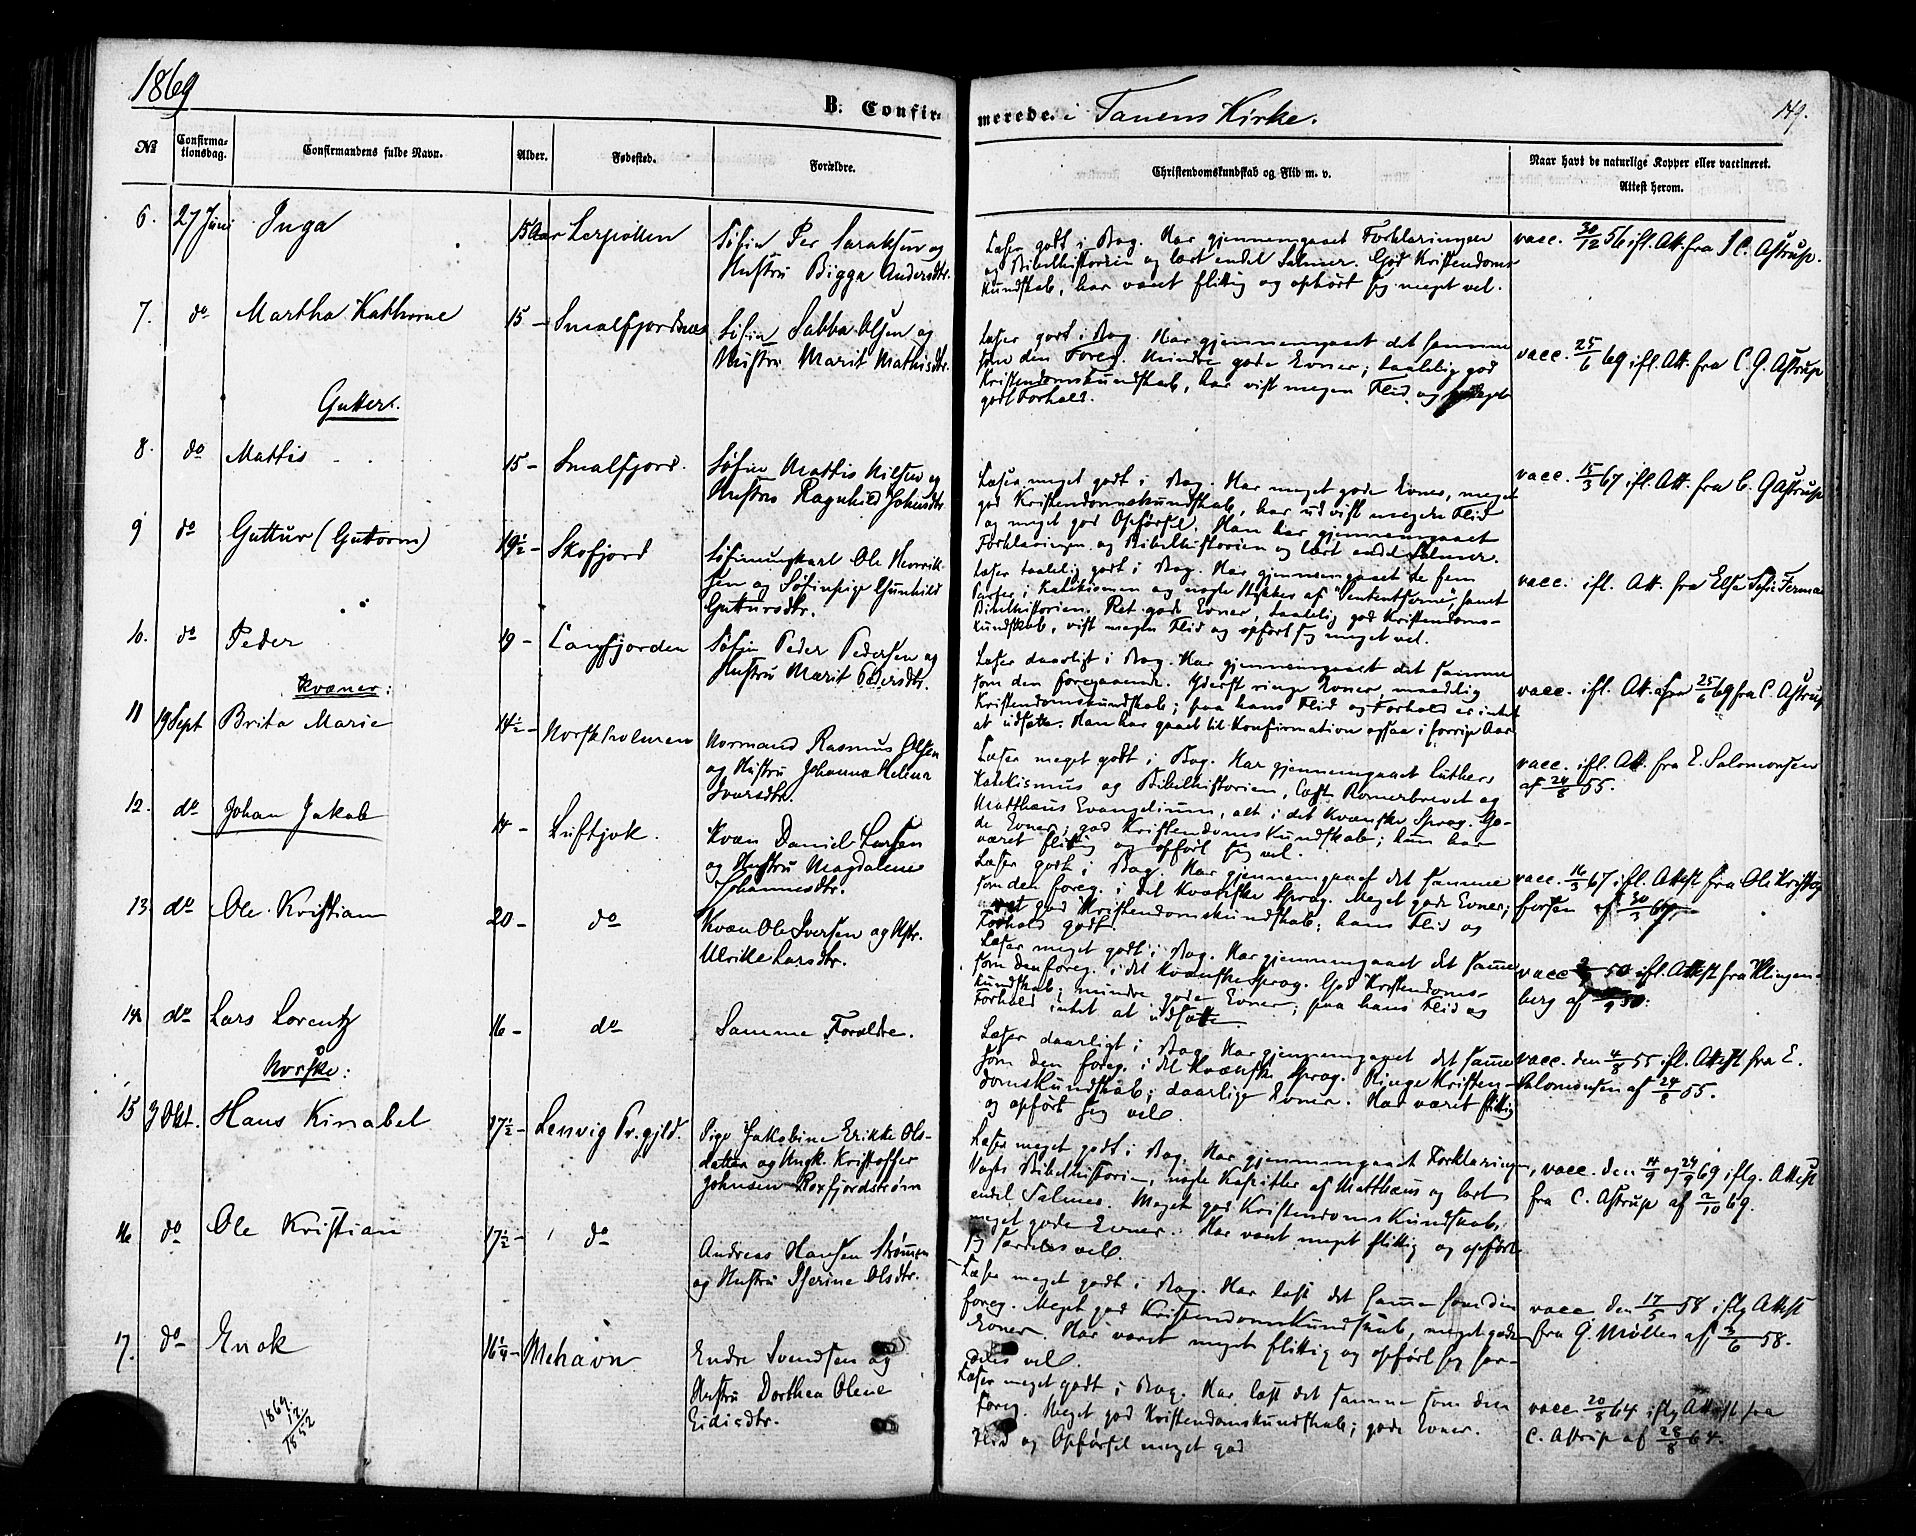 1869
B. Confirmerede i Tanens Kirke.
149.
№ Confirmationsdag. Confirmandens fulde Navn. Alder. Fødested. Forældre. Christendomskundskab og Flid m. v. Naar havt de naturlige Kopper eller vaccineret. Attest herom.
6. 27 Juni Inga 15 Aar Lerpollen
Søfin Per Saraksen og
Hustru Bigga Andersdtr.
Læser godt i Bog. Har gjennemgaaet Forklaringen
og Bibelhistorien og lært endel Salmer. God Kristendoms-
kundskab, har været flittig og opført sig meget vel.
vacc. 30/12 56 ifl. Att. fra C. Astrup.
7. do Martha Kathrine 15 – Smalfjordnæs
Søfin Sabba Olsen og
Hustru Marit Mathisdtr.
Læser godt i Bog. Har gjennemgaaet det samme
som den Foreg. Mindre gode Evner; taalelig god
Kristendomskundskab, har vist megen Flid og
godt Forhold.
vacc. 25/6 69 ifl. Att. fra C. G. Astrup
Gutter.
8. do Mattis 15 – Smalfjord.
Søfin Mattis Nilsen og
Hustru Ragnhild Johnsdtr
Læser meget godt i Bog. Har meget gode Evner, meget
god Kristendomskundskab, har udvist megen Flid
og meget god Opførsel. Han har gjennemgaaet
Forklaringen og Bibelhistorien og lært endel Salmer.
vacc. 15/3 67 ifl. Att. fra C. G Astrup
9 do Guttur (Guttorm) 19½ – Skofjord
Søfinungkarl Ole Henrik-
sen og Søfinpige Gunhild
Guttursdtr.
Læser taalelig godt i Bog. Har gjennemgaaet de fem
Parter i Katekismen og nogle Stykker af "Sententserne", samt
Bibelhistorien. Ret gode Evner, taalelig god Kristendoms-
kundskab, vist megen Flid og opført sig meget vel.
vacc. ifl. Att. fra Else Sofie Ferman
10. do Peder 19 – Langfjorden
Søfin Peder Pedersen og
Hustru Marit Pedersdtr.
Læser daarligt i Bog. Har gjennemgaaet det samme
som den foregaaende. Yderst ringe Evner, maadelig
Kristendomskundskab; paa hans Flid og Forhold er intet
at udsætte. Han har gaaet til Konfirmation ogsaa i forrige Aar
vacc. ifl. Att. fra 25/6 69 fra C. Astrup
Kvæner:
11 19 Sept Brita Marie 14½ – Norskholmen
Normand Rasmus Olsen
og Hustru Johanna Helena
Ivarsdtr.
Læser meget godt i Bog. Har gjennemgaaet Luthers
Katekismus og Bibelhistorien, læst Romerbrevet og
Matthæus Evangelium, alt i det Kvænske Sprog. Go-
de Evner, god Kristendoms Kundskab; hun har
været flittig og opført sig vel.
vacc. ifl. Att. fra E. Salomonsen
af 24/8 55.
12. do Johan Jakob 14 – Luftjok.
Kvæn Daniel Larsen
og Hustru Magdalene
Johannesdtr.
Læser godt i Bog. Har gjennemgaaet det samme
som den foreg. i det Kvænske Sprog. Meget gode Evner;
god Kristendomskundskab; hans Flid og
Forhold godt.
vacc. 16/3 67 ifl. Attest fra Ole Kristof
fersen af 30/3 67.
13. do Ole Kristian 20 – do
Kvæn Ole Iversen og Hstr.
Ulrikke Larsdtr.
Læser meget godt i Bog. Har gjennemgaaet det samme
som den foreg. i det Kvænske Sprog. God Kristendoms-
kundskab; mindre gode Evner; paa hans Flid og
Forhold intet at udsætte.
vacc. 50 ifl. Attest fra Klingen-
berg af /9 50.
14. do Lars Lorentz 16 – do
Samme Forældre.
Læser daarligt i Bog. Har gjennemgaaet det samme
som den foreg. i det Kvænske Sprog. Ringe Kristen-
domskundskab; daarlige Evner. Har været flittig
og opført sig vel.
vacc. den 4/8 55 ifl. Attest fra E.
Salomonsen af 24/8 55.
Norske:
15 3 Okt. Hans Kinabel 17½ – Lenvig Pr.gjld.
Pige Jakobine Erikke Ols-
datter og Ungk. Kristoffer
Johnsen Roxfjordstrøm
Læser meget godt i Bog. Har gjennemgaaet Forklaringen,
Vogts Bibelhistorie, nogle Kapitler af Matthæus og lært
endel Salmer. Meget god Kristendoms Kundskab,
meget gode Evner. Har været meget flittig og opført
sig særdeles vel.
vacc. den 14/9 og 24/9 69 iflg. Attest
fra C. Astrup af 2/10 69.
16 do Ole Kristian 17½ – do
Andreas Hansen Strømmen
og Hustru Iserine Olsdtr.
Læser meget godt i Bog. Har læst det samme som den
foreg. Meget god Kristendomskundskab, meget gode
Evner. Har været meget flittig og opført sig sær-
deles vel.
vacc den 17/5 58 iflg Attest
fra G. Møller af 3/6 58.
17. do Enok 16¼ – Mehavn
Endre Svendsen og
Hustru Dorthea Olene
Eidisdtr.
Læser meget godt i Bog. Har læst det samme som den
Foreg. Meget god Kristendomskundskab; gode Evner.
Flid og Opførsel meget god
vacc. 20/8 64 iflg Attest fra
C. Astrup af 28/8 64.
1869.
17
1852